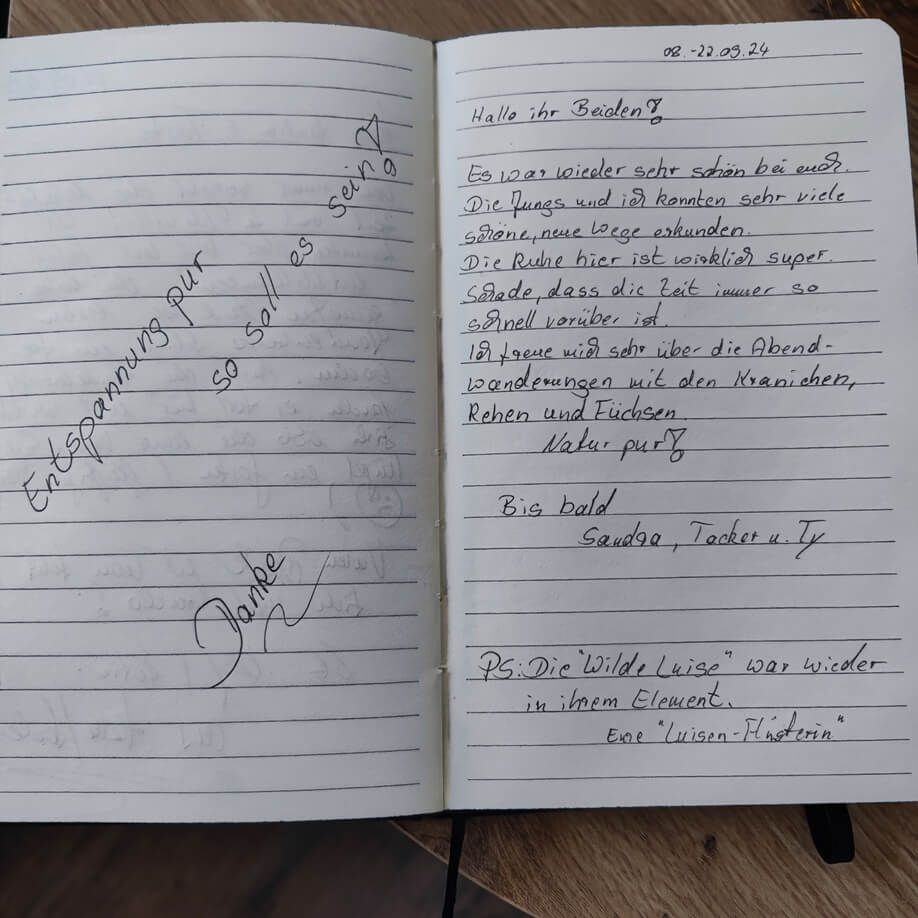 Entspannung pur
so soll es sein!
Danke
08.-22.09.24
Hallo ihr Beiden!
Es war wieder sehr schön bei euch.
Die Jungs und ich konnten sehr viele
schöne, neue Wege erkunden.
Die Ruhe hier ist wirklich super.
Schade, dass die Zeit immer so
schnell vorüber ist.
Ich freue mich sehr über die Abend-
wanderungen mit den Kranichen,
Rehen und Füchsen.
Natur pur!
Bis bald
Sandra, Tacker u. Ty
PS: Die "Wilde Luise" war wieder
in ihrem Element.
Eine "Luisen-Flüsterin"